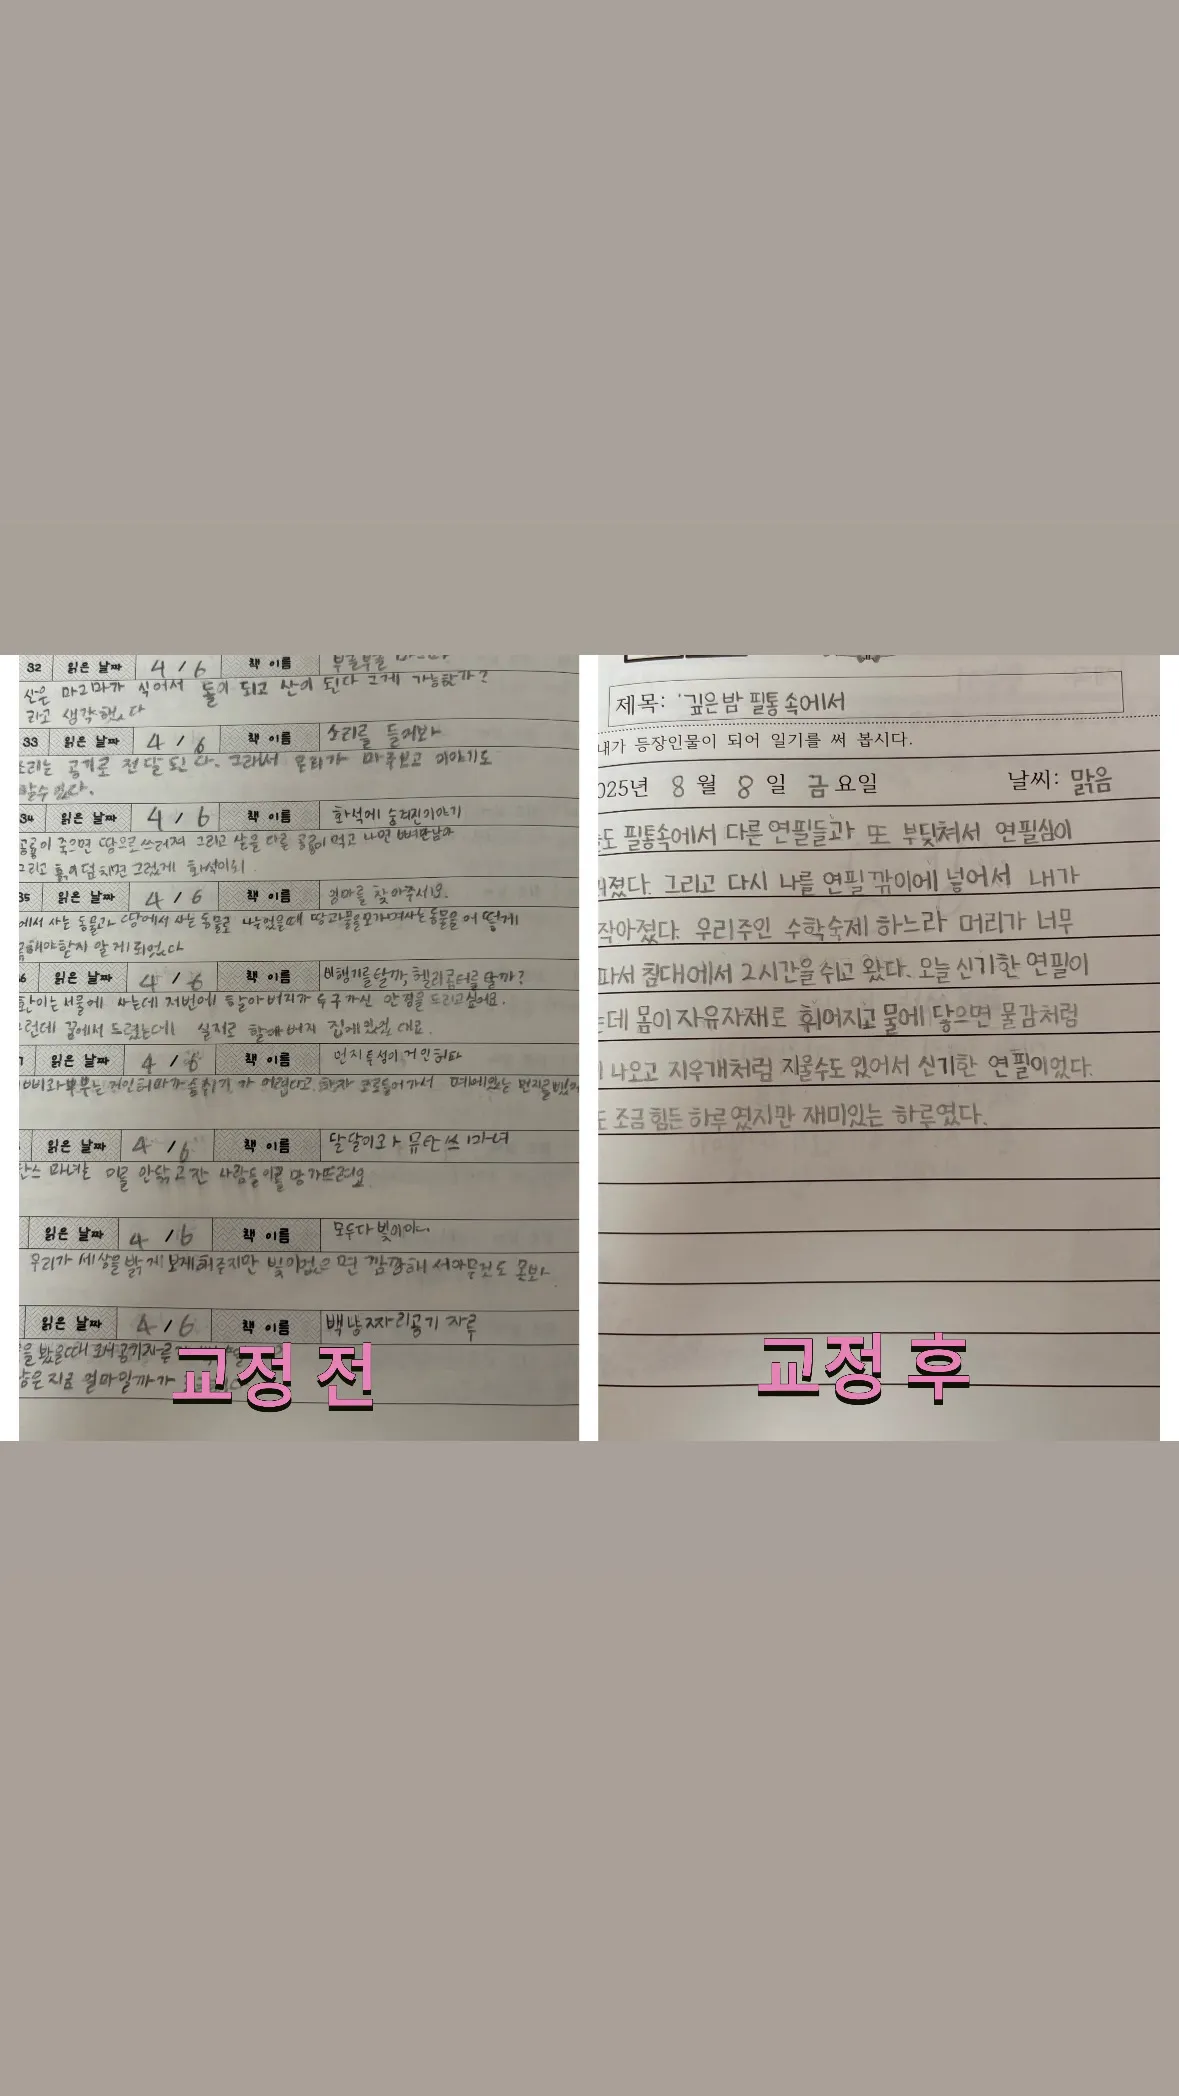 32 읽은 날짜 4 / 6 책 이름
산은 마그마가 식어서 돌이 되고 산이 된다 그게 가능한가?
라고 생각했다
33 읽은 날짜 4 / 6 책 이름 소리를 들어봐
소리는 공기로 전달된다. 그래서 우리가 마주보고 이야기도
할수있다.
34 읽은 날짜 4 / 6 책 이름 화석에 숨겨진이야기
공룡이 죽으면 땅으로 쓰러져 그리고 살을 다른 공룡이 먹고 나면 뼈만남아
그리고 흙이덮치면 그렇게 화석이되
35 읽은 날짜 4 / 6 책 이름 엄마를 찾아주세요.
에서 사는 동물과 땅에서 사는 동물로 나누었을때 땅과물을오가며사는동물을 어떻게
해야한지 알게되었다
6 읽은 날짜 4 / 6 책 이름 비행기를탈까, 헬리콥터를 탈까?
환이는서울에 사는데 저번에 할아버지가 두구가신 안경을 드리고싶어요.
그런데 꿈에서 드렸는데 실제로 할아버지 집에있을 대고.
7 읽은 날짜 4 / 6 책 이름 먼지특성이 거인허파
읽은 날짜 4 / 6 책 이름 달달이와 뮤탄쓰 마녀
탄스 마녀는 이를 안닦고잔 사람들이를 망가뜨려요
읽은 날짜 4 / 6 책 이름 모두다빛이야
우리가 세상을 밝게보게해주지만 빛이없으면 깜깜해서아무것도 못봐
읽은 날짜 4 / 6 책 이름 백냥짜리공기 자루
교정 전
제목: '깊은밤 필통속에서
내가 등장인물이 되어 일기를 써 봅시다.
025년 8 월 8 일 금요일 날씨: 맑음
도 필통속에서 다른연필들과 또 부딪쳐서 연필심이
졌다. 그리고 다시 나를 연필깎이에 넣어서 내가
작아졌다. 우리주인 수학숙제 하느라 머리가 너무
파서 침대에서 2시간을쉬고 왔다. 오늘 신기한 연필이
는데 몸이 자유자재로 휘어지고 물에 닿으면 물감처럼
나오고 지우개처럼 지울수도 있어서 신기한 연필이었다.
조금힘든하루였지만 재미있는 하루였다.
교정 후